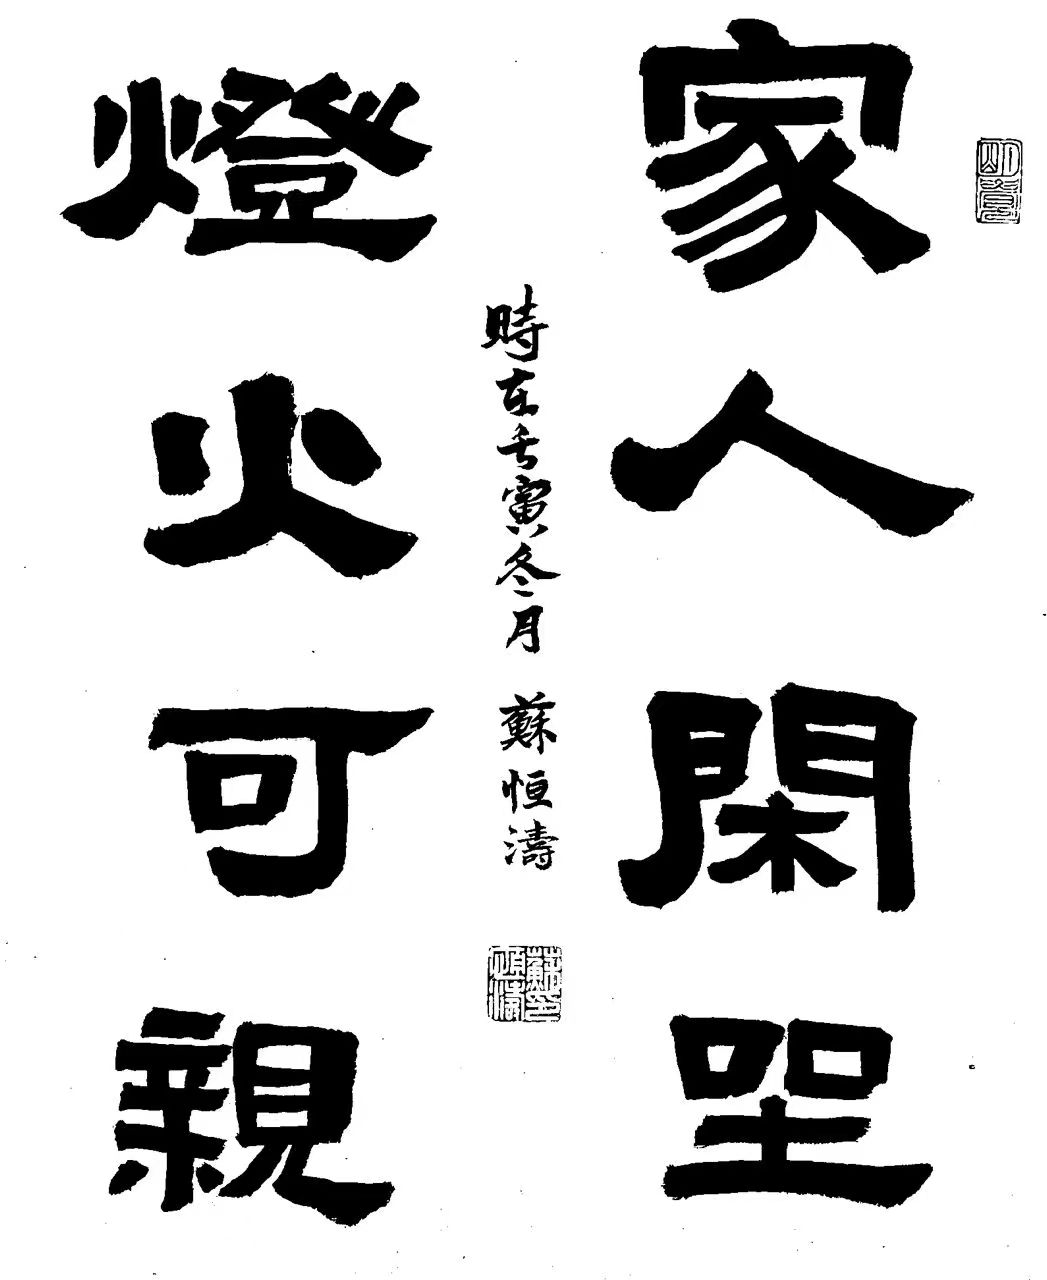 家人閑坐
燈火可親
時在壬寅冬月 蘇恒濤